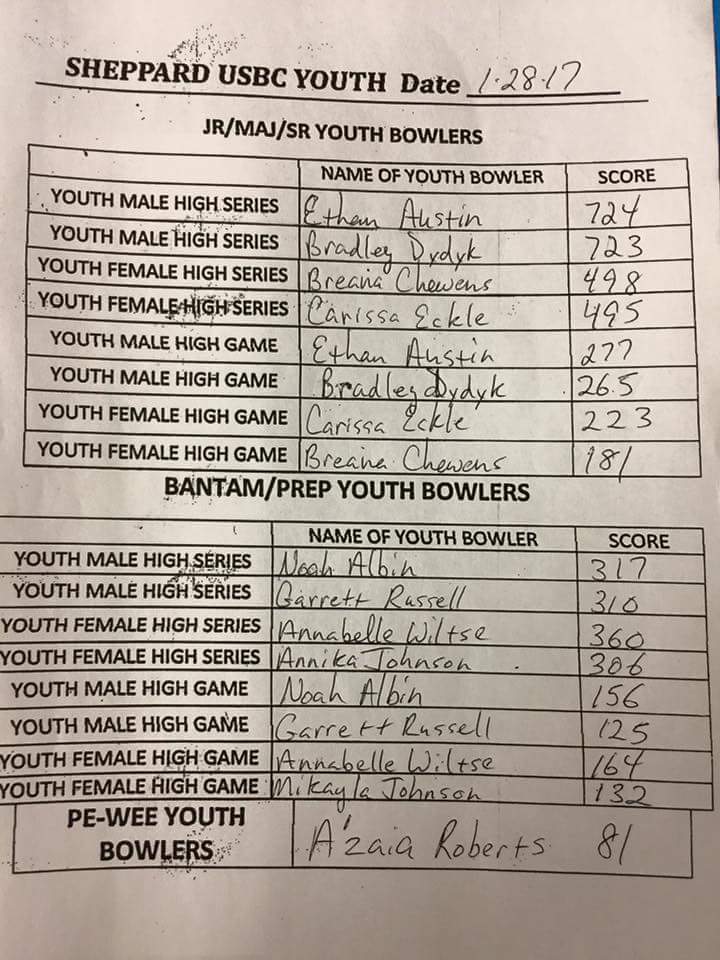 SHEPPARD USBC YOUTH Date 1·28·17
JR/MAJ/SR YOUTH BOWLERS
NAME OF YOUTH BOWLER SCORE
YOUTH MALE HIGH SERIES Ethan Austin 724
YOUTH MALE HIGH SERIES Bradley Dydyk 723
YOUTH FEMALE HIGH SERIES Breana Chewens 498
YOUTH FEMALE HIGH SERIES Carissa Eckle 495
YOUTH MALE HIGH GAME Ethan Austin 277
YOUTH MALE HIGH GAME Bradley Dydyk 265
YOUTH FEMALE HIGH GAME Carissa Eckle 223
YOUTH FEMALE HIGH GAME Breana Chewens 181
BANTAM/PREP YOUTH BOWLERS
NAME OF YOUTH BOWLER SCORE
YOUTH MALE HIGH SERIES Noah Albin 317
YOUTH MALE HIGH SERIES Garrett Russell 310
YOUTH FEMALE HIGH SERIES Annabelle Wiltse 360
YOUTH FEMALE HIGH SERIES Annika Johnson 306
YOUTH MALE HIGH GAME Noah Albin 156
YOUTH MALE HIGH GAME Garrett Russell 125
YOUTH FEMALE HIGH GAME Annabelle Wiltse 164
YOUTH FEMALE HIGH GAME Mikayla Johnson 132
PE-WEE YOUTH
BOWLERS A'zaia Roberts 81